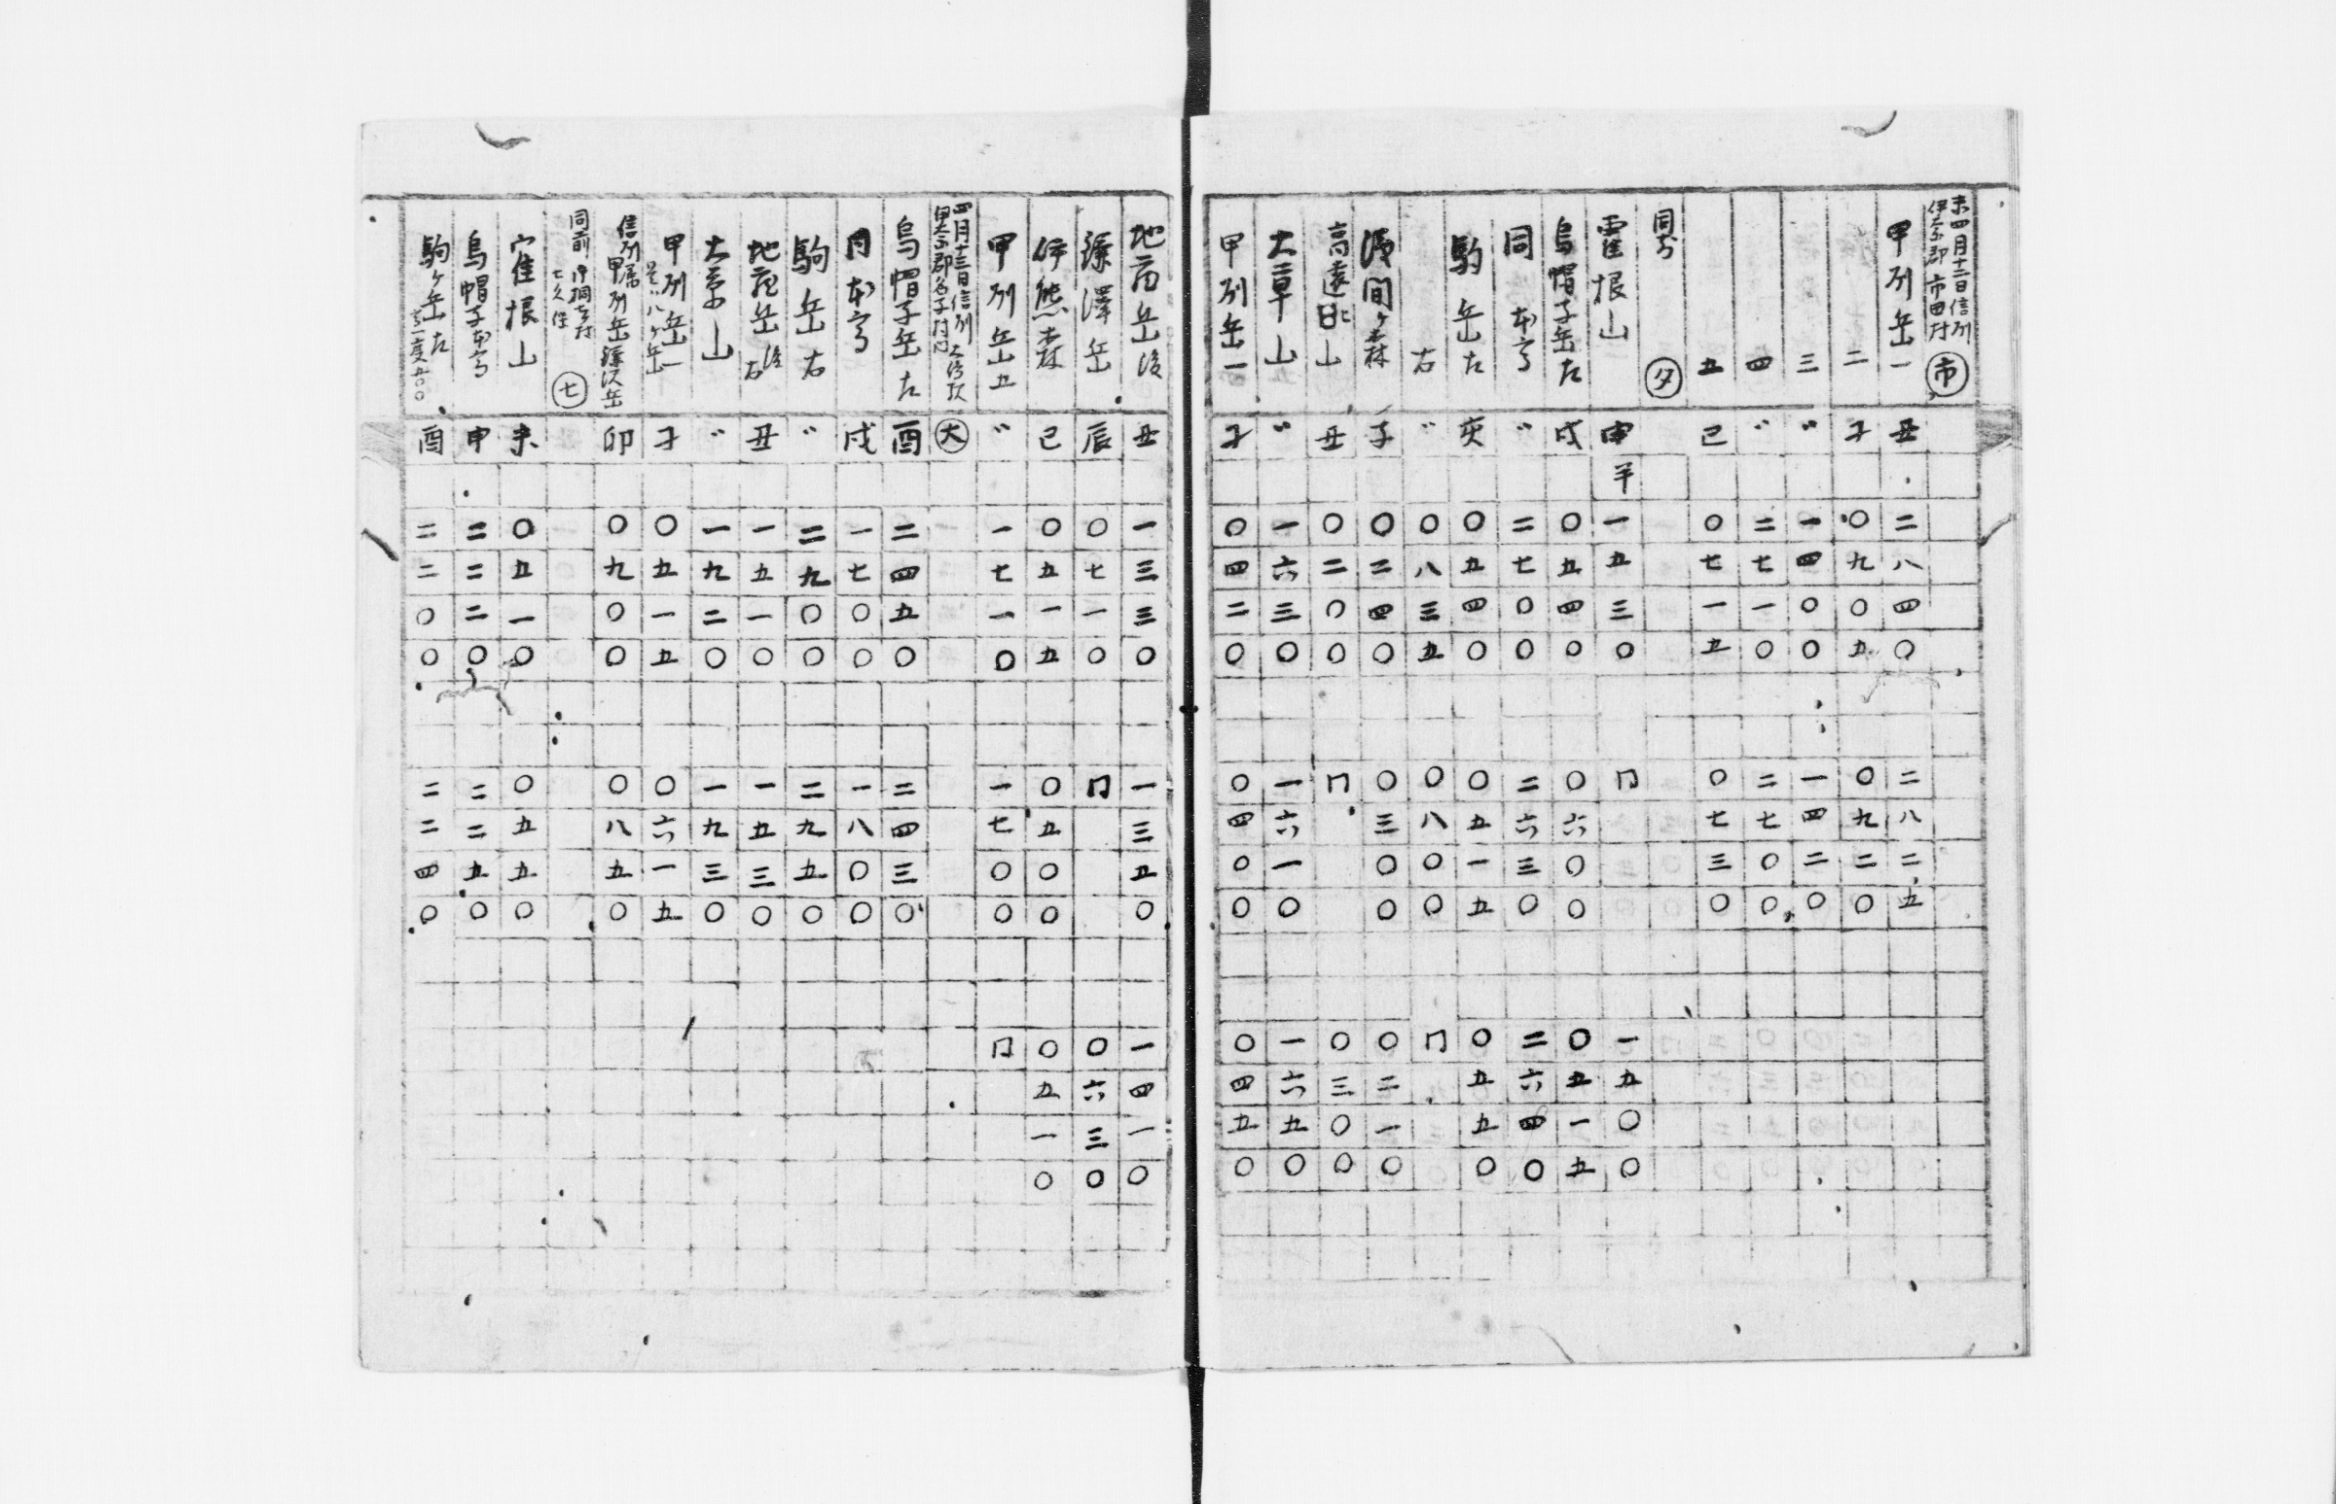 未四月十二日信州
伊奈郡市田村 市
甲州岳一 丑 二八四〇 二八二五
二 子 〇九〇五 〇九二〇
三 〃 一四〇〇 一四二〇
四 〃 二七一〇 二七〇〇
五 巳 〇七一五 〇七三〇
同 夕
霍根山 申半 一五三〇 冂 一五〇〇
烏帽子岳左 戌 〇五四〇 〇六〇〇 〇五一五
同 〃 二七〇〇 二六三〇 二六四〇
駒岳左 亥 〇五四〇 〇五一五 〇五五〇
右 〃 〇八三五 〇八〇〇 冂
浅間ヶ森 子 〇二四〇 〇三〇〇 〇二一〇
高遠山 丑 〇二〇〇 冂 〇三〇〇
大草山 〃 一六三〇 一六一〇 一六五〇
甲州岳一 子 〇四二〇 〇四〇〇 〇四五〇
地蔵岳後 丑 一三三〇 一三五〇 一四一〇
澤岳 辰 〇七一〇 冂 〇六三〇
伊熊森 巳 〇五一五 〇五〇〇 〇五一〇
甲州岳五 〃 一七一〇 一七〇〇 冂
四月十三日信州
伊奈郡 大
烏帽子岳左 酉 二四五〇 二四三〇
同 戌 一七〇〇 一八〇〇
駒岳右 〃 二九〇〇 二九五〇
地蔵岳後右 丑 一五一〇 一五三〇
大草山 〃 一九二〇 一九三〇
甲州岳一 子 〇五一五 〇六一五
信州 甲州岳 卯 〇九〇〇 〇八五〇
同前 七久保 七
霍根山 未 〇五一〇 〇五五〇
烏帽子 申 二二二〇 二二五〇
駒ヶ岳左 酉 二二〇〇 二二四〇